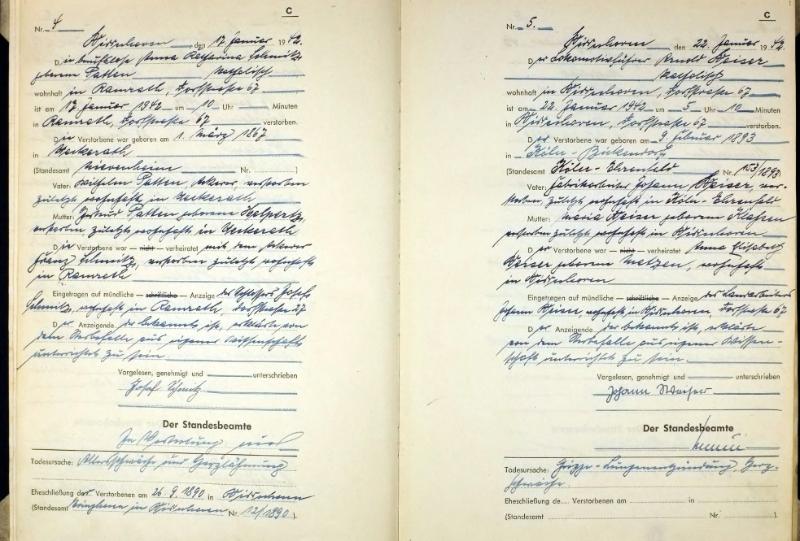 C
Nr. 4
den 17. Januar 1942.
Die berufslose Anna Katharina Schmitz
geborene Patten katholisch
wohnhaft in Ramrath, Dorfstrasse 67
ist am 17. Januar 1942 um 10 Uhr Minuten
in Ramrath, Dorfstrasse 67 verstorben.
Die Verstorbene war geboren am 1. März 1867
in
(Standesamt Nievenheim Nr. )
Vater: Wilhelm Patten, Ackerer, verstorben
zuletzt wohnhaft in
Mutter: Gertrud Patten geborene
verstorben zuletzt wohnhaft in
Die Verstorbene war — nicht — verheiratet mit dem Ackerer
Franz Schmitz, verstorben zuletzt wohnhaft
in Ramrath
Eingetragen auf mündliche — schriftliche — Anzeige des Schlossers Josef
Schmitz, wohnhaft in Ramrath, Dorfstrasse 67
Der Anzeigende, der bekannt ist, erklärte von
dem Sterbefalle aus eigener Wissenschaft
unterrichtet zu sein
Vorgelesen, genehmigt und unterschrieben
Josef Schmitz
Der Standesbeamte
In Vertretung
Todesursache: Altersschwäche und Herzlähmung
Eheschließung der Verstorbenen am 26.9.1890 in
(Standesamt in Nr. 12/1890 )
C
Nr. 5.
den 22. Januar 1942
Der Lokomotivführer Arnold Weiser
katholisch
wohnhaft in Dorfstrasse 67
ist am 22. Januar 1942 um 5 Uhr 10 Minuten
in Dorfstrasse 67 verstorben.
Der Verstorbene war geboren am 9. Februar 1893
in Köln-Bickendorf
(Standesamt Köln-Ehrenfeld Nr. 153/1893)
Vater: Fabrikarbeiter Johann Weiser, ver-
storben, zuletzt wohnhaft in Köln-Ehrenfeld
Mutter: Maria Weiser geborene Klassen
verstorben zuletzt wohnhaft in
Der Verstorbene war — nicht — verheiratet Anna Elisabeth
Weiser geborene Metzen, wohnhaft
in
Eingetragen auf mündliche — schriftliche — Anzeige des Landarbeiters
Johann Weiser wohnhaft in Dorfstrasse 67
Der Anzeigende, der bekannt ist, erklärte
von dem Sterbefalle aus eigener Wissen-
schaft unterrichtet zu sein.
Vorgelesen, genehmigt und unterschrieben
Johann Weiser
Der Standesbeamte
Todesursache: Grippe-Lungenentzündung, Herz-
schwäche.
Eheschließung de... Verstorbenen am in
(Standesamt Nr. )